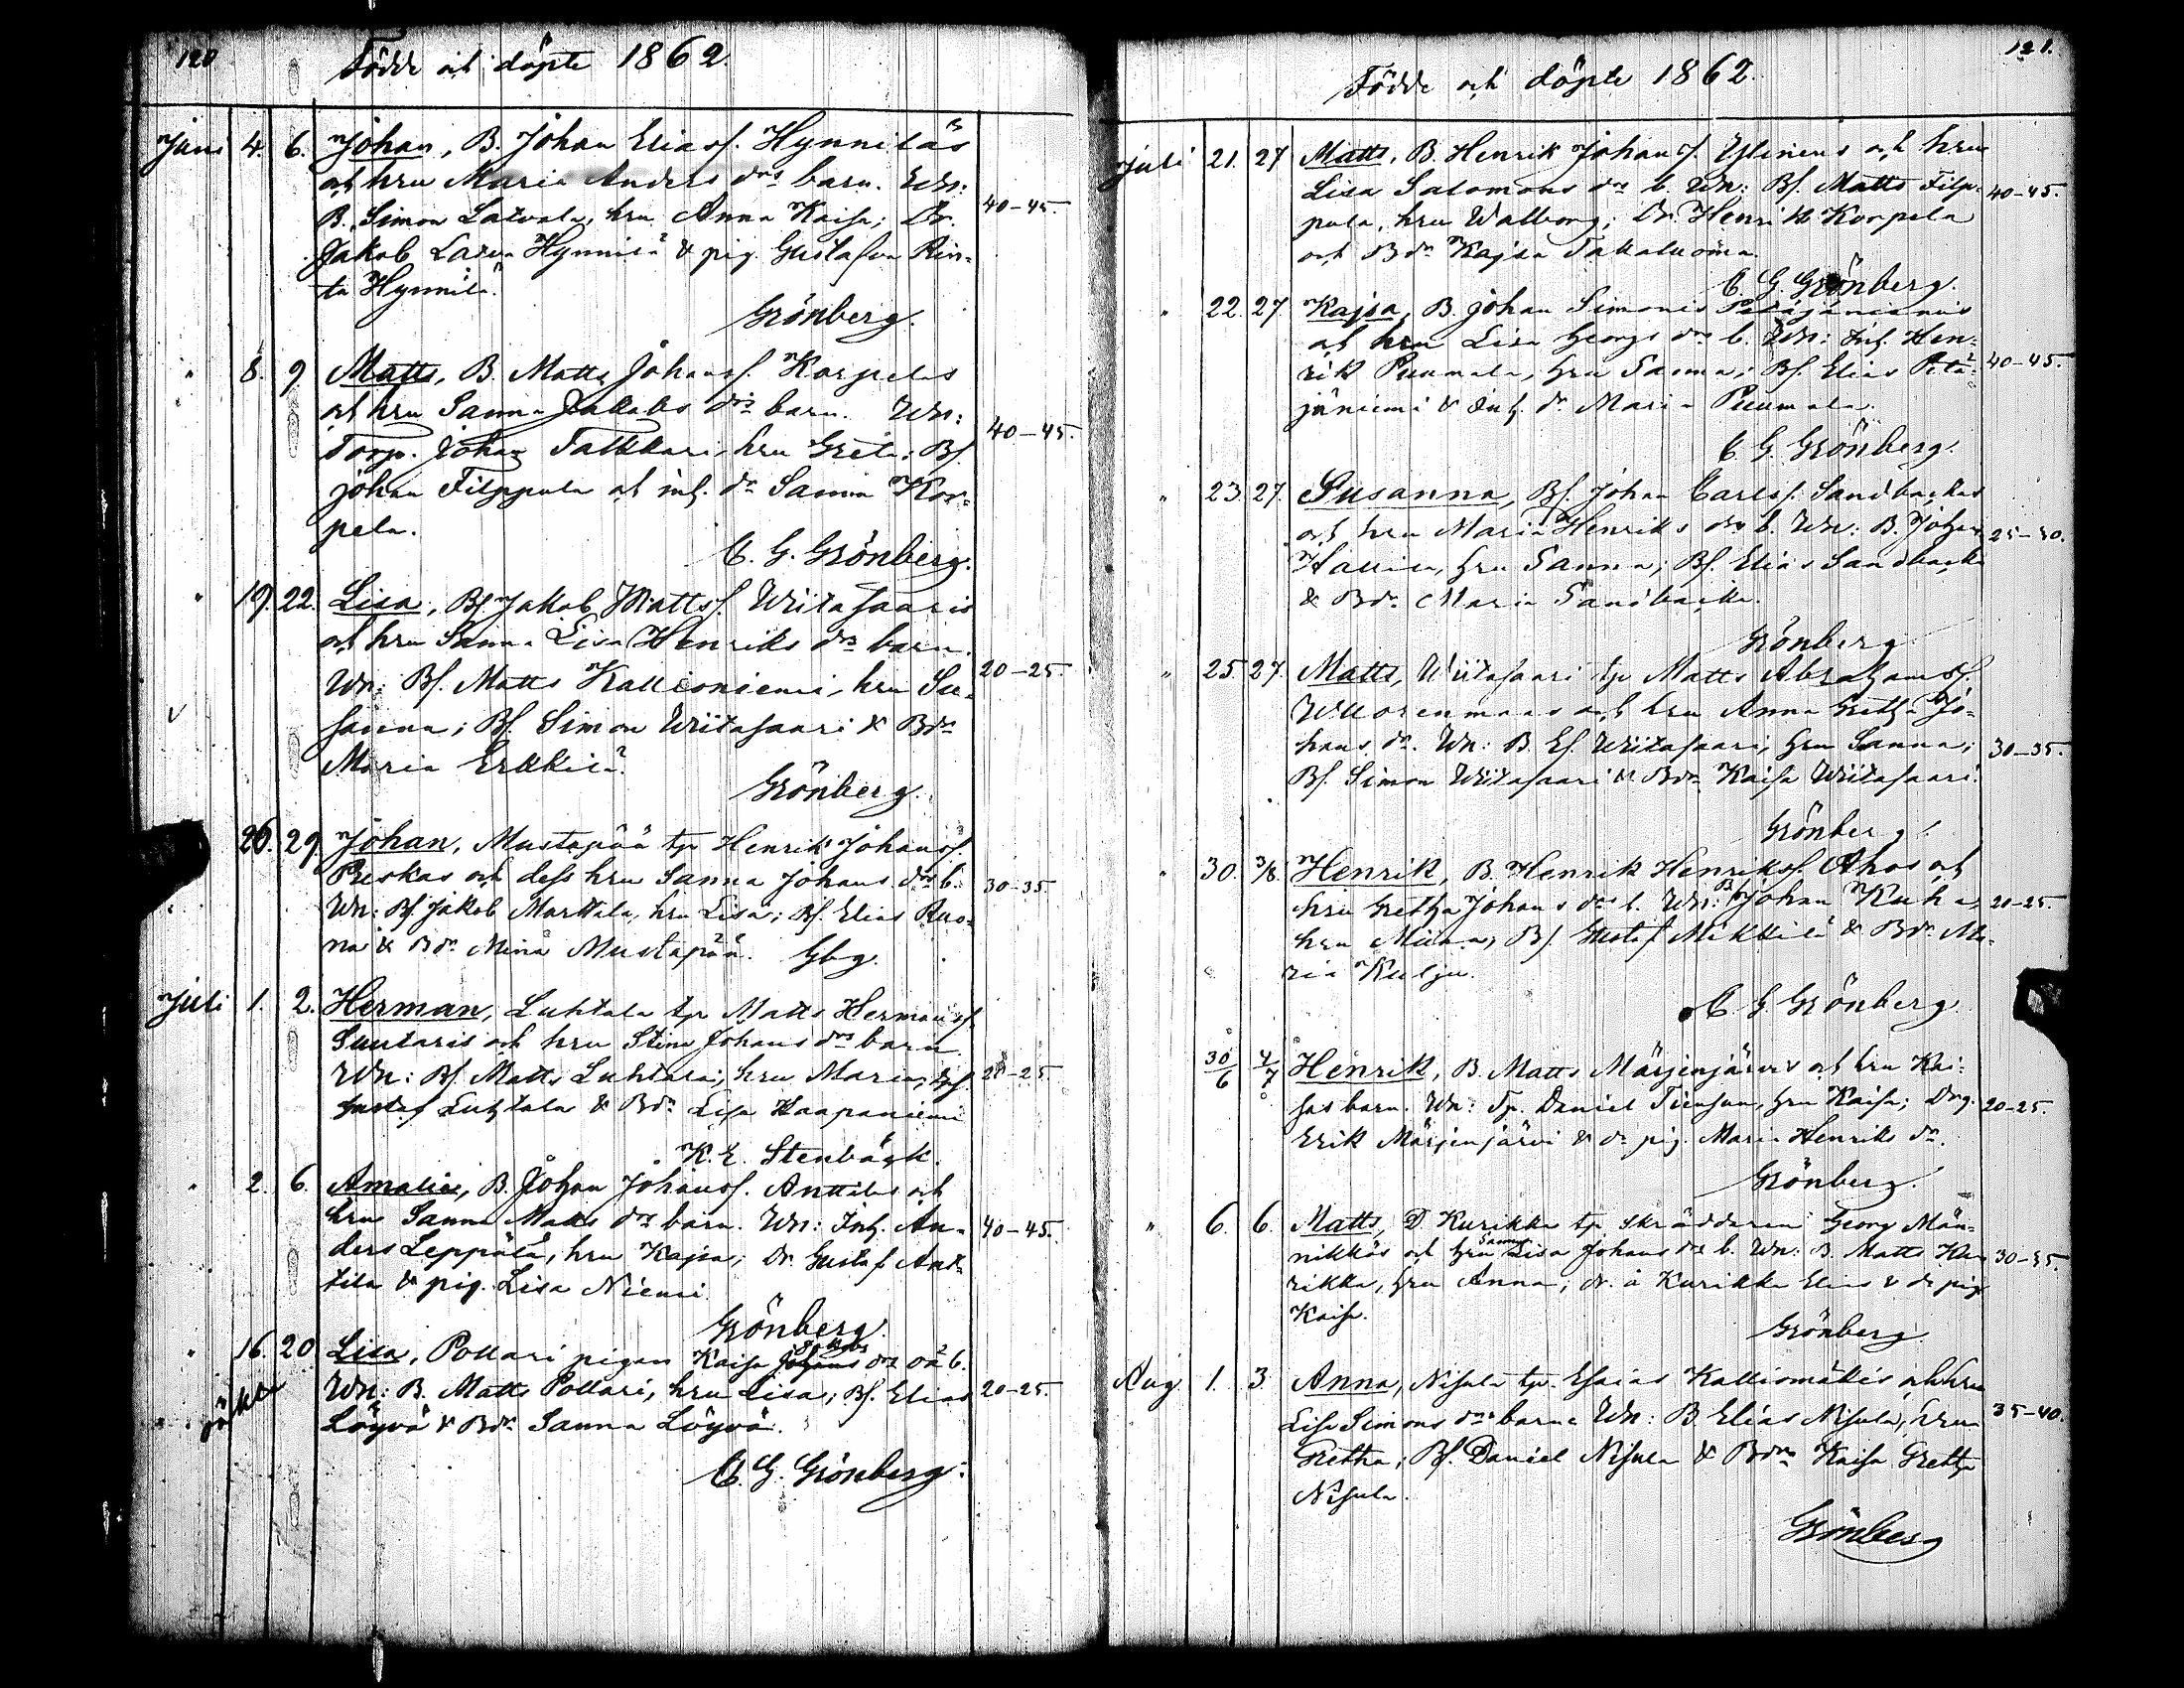 120
Födde och döpte 1862
Juni 4. 6. Johan, B. Johan Eliass. Hynniläs
och hru Maria Anders drs barn. Wn:
B. Simon Latvala, hru Anna Kaisa; Dr. 40-45.
Jakob Latva Hynnilä & pig. Gustafva Rin-
ta Hynnilä.
Grönberg.
" 8. 9 Matts, B. Matts Johanss. Korpelas
och hru Sanna Jakobs drs barn. Wn:
Torp. Johan Talkkari, hru Greta; Bs. 40-45.
Johan Filppula och inh. dr Sanna Kor-
pela.
C. G. Grönberg.
" 19. 22. Lisa, Bs. Jakob Mattss. Wiitasaaris
och hru Sanna Lisa Henriks drs barn.
Wn: Bs. Matts Kallioniemi, hru Su- 20-25.
sanna; Bs. Simon Wiitasaari & Bdr
Maria Erkkilä.
Grönberg.
26. 29. Johan, Mustapää tp Henrik Johanss.
Peskas och dess hru Sanna Johans drs b. 30-35
Wn: Bs. Jakob Marttala, hru Lisa; Bs. Elias Ruo-
na & Bdr. Mina Mustapää. Gbg.
Juli 1. 2. Herman, Luhtala tp Matts Hermanss.
Suutaris och hru Stina Johans drs barn.
Wn: Bs. Matts Luhtala, hru Maria; 20-25.
Gustaf Luhtala & Bdr Lisa Haapaniemi
K. E. Stenbäck.
" 2. 6. Amalia, B. Johan Johanss. Anttilas och
hru Sanna Matts drs barn. Wn: Inh. An- 40-45.
ders Leppälä, hru Kajsa; Dr. Gustaf Ant-
tila & pig. Lisa Niemi.
Grönberg.
" 16. 20 Lisa, Pollari pigan Kaisa Johans drs oä b.
Wn: B. Matts Pollari, hru Lisa; Bs. Elias 20-25.
Löyvä & Bdr. Sanna Löyvä.
C. G. Grönberg.
121.
Födde och döpte 1862.
Juli 21. 27 Matts, B. Henrik Johans s. Ylinens och hru
Lisa Salomons drs b. Wn: Bs. Matts Filp- 40-45.
pula, hru Walborg; Dr. Henrik Korpela
och Bdr Kajsa Takaluoma.
C. G. Grönberg.
" 22. 27. Kajsa, B. Johan Simons Petäjäniemis
och hru Lisa Georgs drs b. Wn: Inh. Hen-
rik Puumala, hru Sanna; Bs. Elias Petä- 40-45.
jäniemi & inh. dr. Maria Puumala.
C. G. Grönberg.
" 23. 27. Susanna, Bs. Johan Carlss. Sandbackas
och hru Maria Henriks drs b. Wn: B. Johan 25-30.
hru Sanna; Bs. Elias Sandbacka
& Bdr. Maria Sandbacka.
Grönberg
" 25. 27. Matts, Wiitasaari tp Matts Abrahamss.
Wuorenmaas och hru Anna Gretha Jo-
hans dr. Wn: B. Es. Wiitasaari, hru Sanna; 30-35.
Bs. Simon Wiitasaari & Bdr Kaisa Wiitasaari.
Grönberg.
" 30. 3/8. Henrik, B. Henrik Henrikss. Ahos och
hru Gretha Johans drs b. Wn: B Johan Kuha 20-25.
hru Miina; Bs. Gustaf Mikkilä & Bdr. Ma-
ria Kulju.
C. G. Grönberg
30/6 4/7 Henrik, B. Matts Märjenjärvis och hru Kai-
sas barn. Wn: Tp. Daniel Tiensuu, hru Kaisa; Drg. 20-25.
Erik Märjenjärvi & dr pig. Maria Henriks dr.
Grönberg.
" 6. 6. Matts, D. Kurikka tp skräddaren Georg Män-
nikkös och hru Sanna Lisa Johans drs b. Wn: B. Matts Ku- 30-35.
rikka, hru Anna; dr. å Kurikka Elias & dr pig
Kaisa.
Grönberg
Aug 1. 3. Anna, Nisula tp. Esaias Kalliomäkis och hru
Lisa Simons drs barn Wn: B. Elias Nisula, hru 35-40.
Gretha; Bs. Daniel Nisula & Bdr Kaisa Gretha
Nisula.
Grönberg